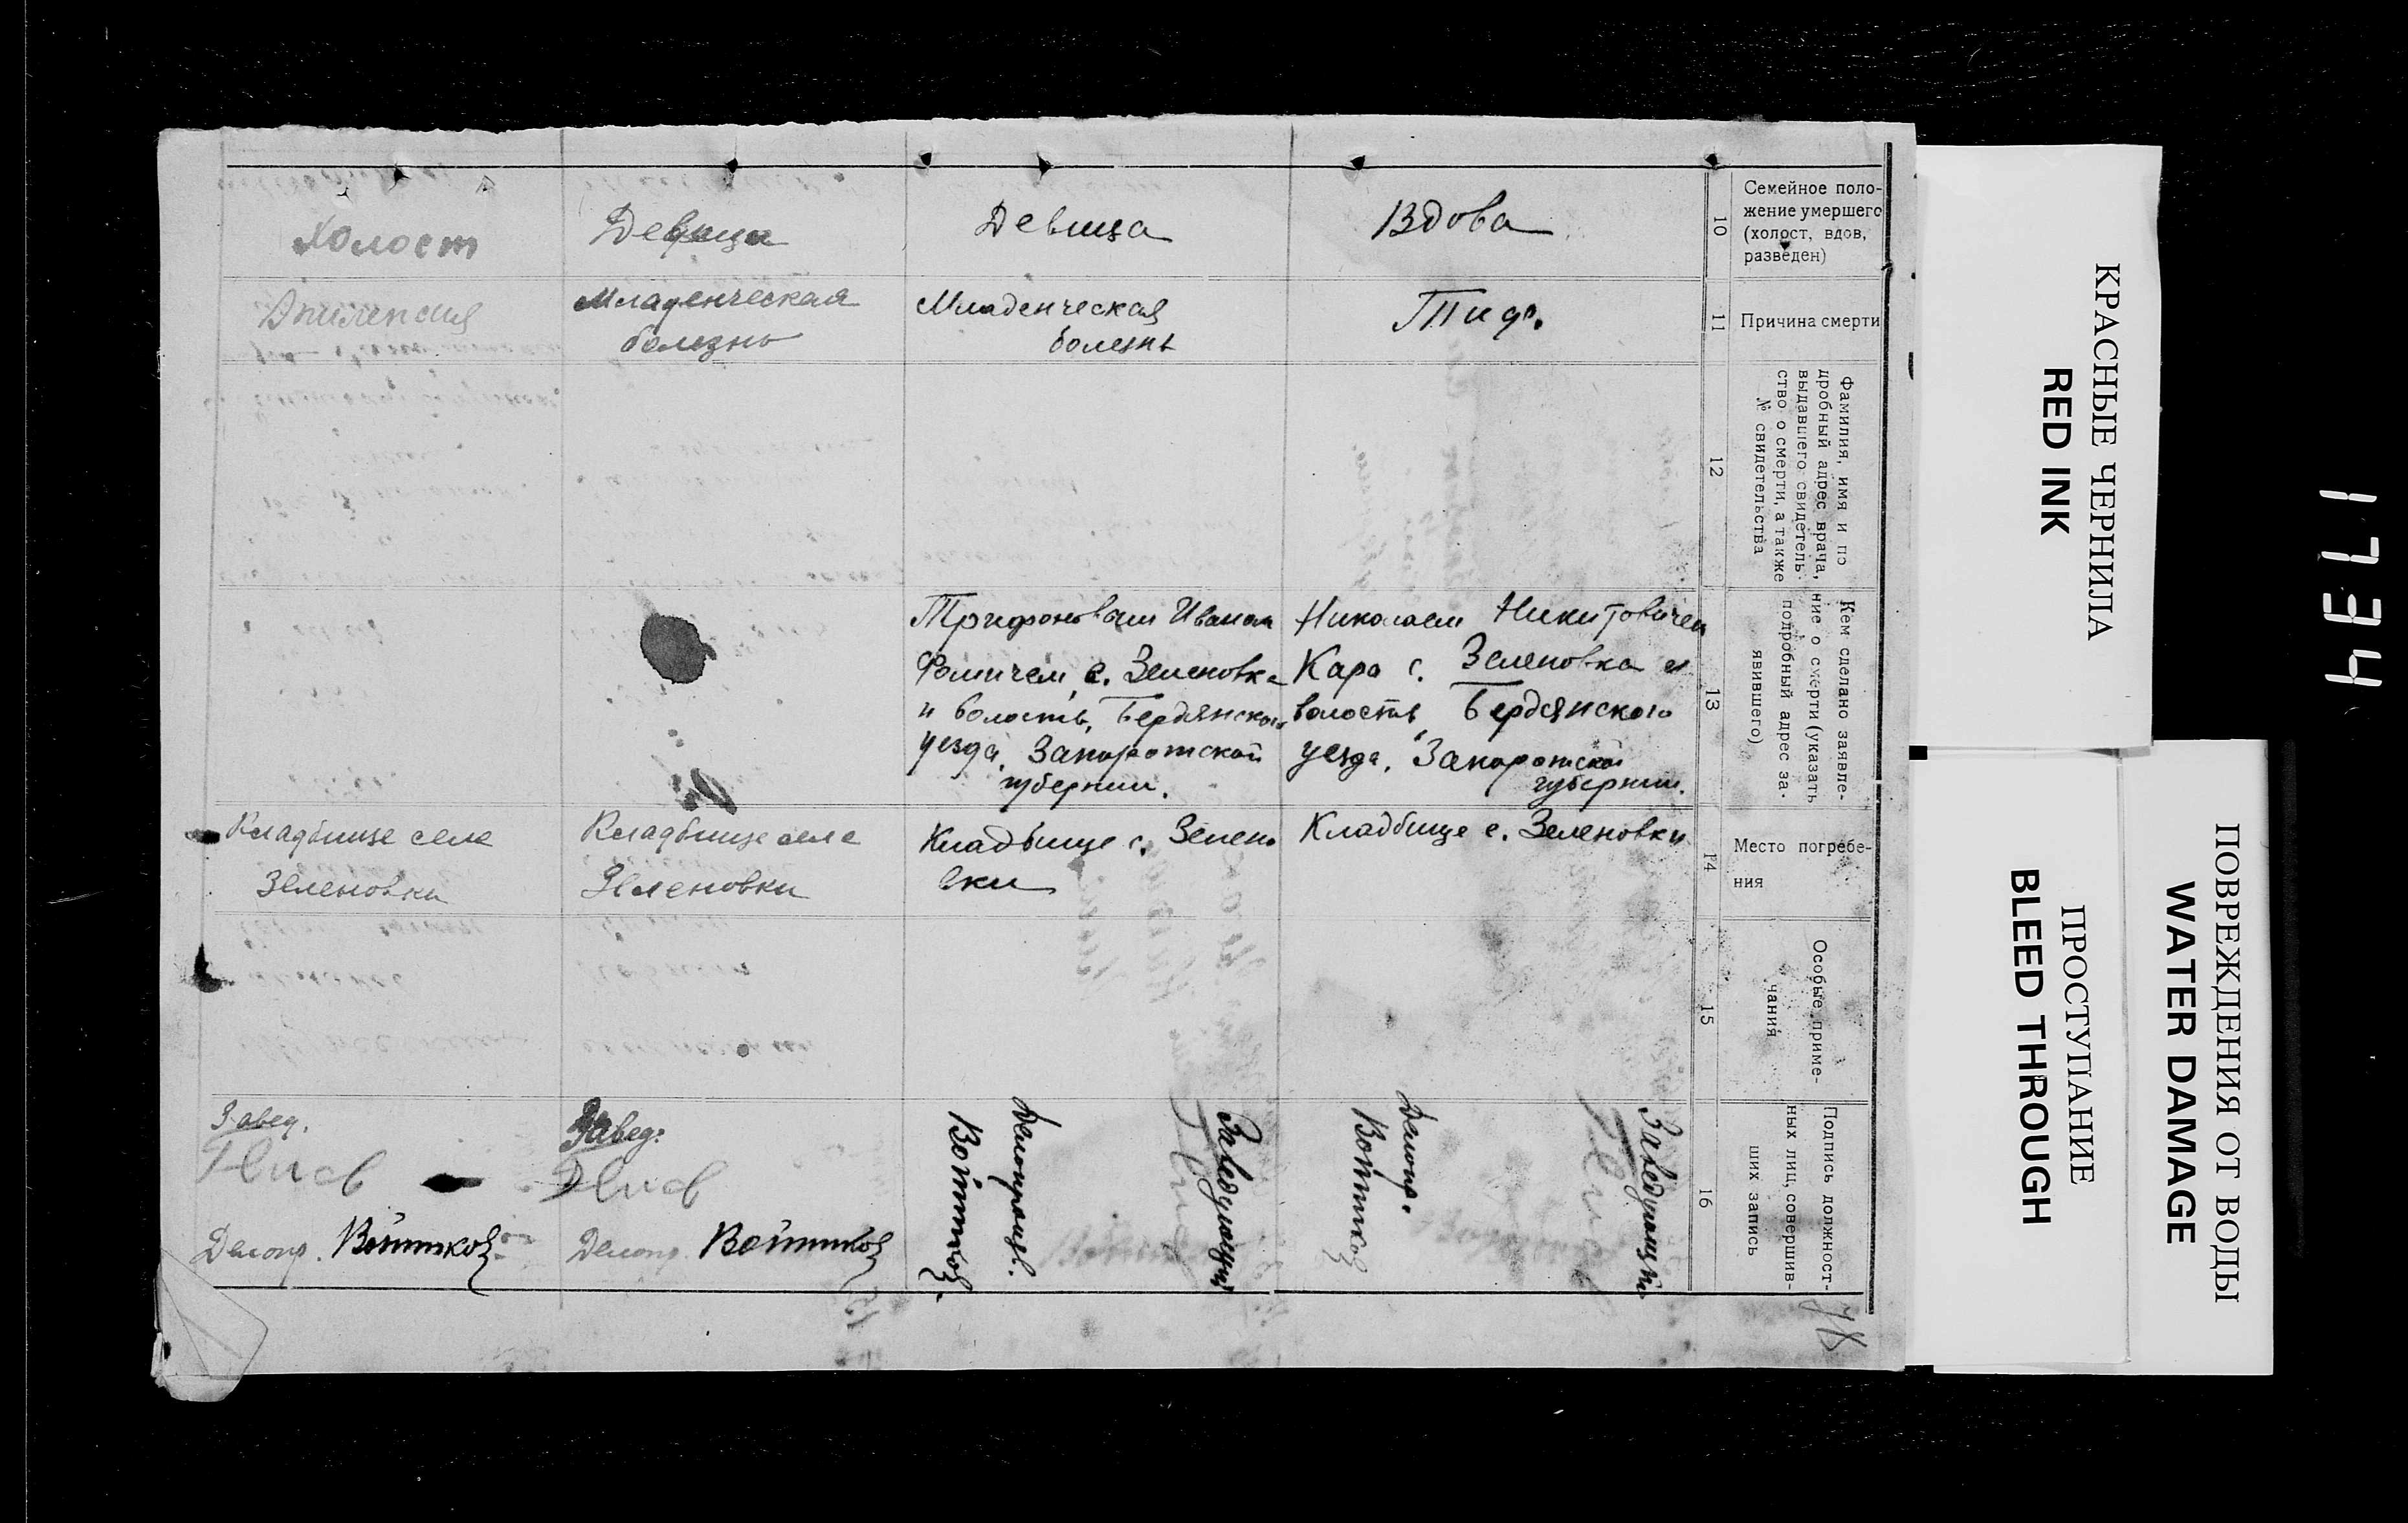 Холост
Девица
Девица
Вдова
10
Семейное поло-
жение умершего
(холост, вдов,
разведен)
Эпилепсия
Младенческая
болезнь
Младенческая
болезнь
Тиф.
11
Причина смерти
12
Фамилия, имя и по
дробный адрес врача,
выдавшего свидетель-
ство о смерти, а также
№ свидетельства
Трифоновым Иваном
Фомичем, с. Зеленовка
и волость, Бердянского
уезда, Запорожской
губернии.
Николаем Никитовичем
Кара с. Зеленовка и
волость, Бердянского
уезда, Запорожской
губернии.
13
Кем сделано заявле-
ние о смерти (указать
подробный адрес за-
явившего)
Кладбище села
Зеленовки
Кладбище села
Зеленовки
Кладбище с. Зелено
вки
Кладбище с. Зеленовки
14
Место погребе-
ния
15
Особые приме-
чания
Завед.
Делопр. Войтиков
Завед.
Делопр. Войтиков
Заведующий
Делопроизв.
Войтиков.
Заведующий
Делопр.
Войтиков
16
Подпись должност-
ных лиц, совершив-
ших запись
КРАСНЫЕ ЧЕРНИЛА
RED INK
ПОВРЕЖДЕНИЯ ОТ ВОДЫ
WATER DAMAGE
ПРОСТУПАНИЕ
BLEED THROUGH
1734